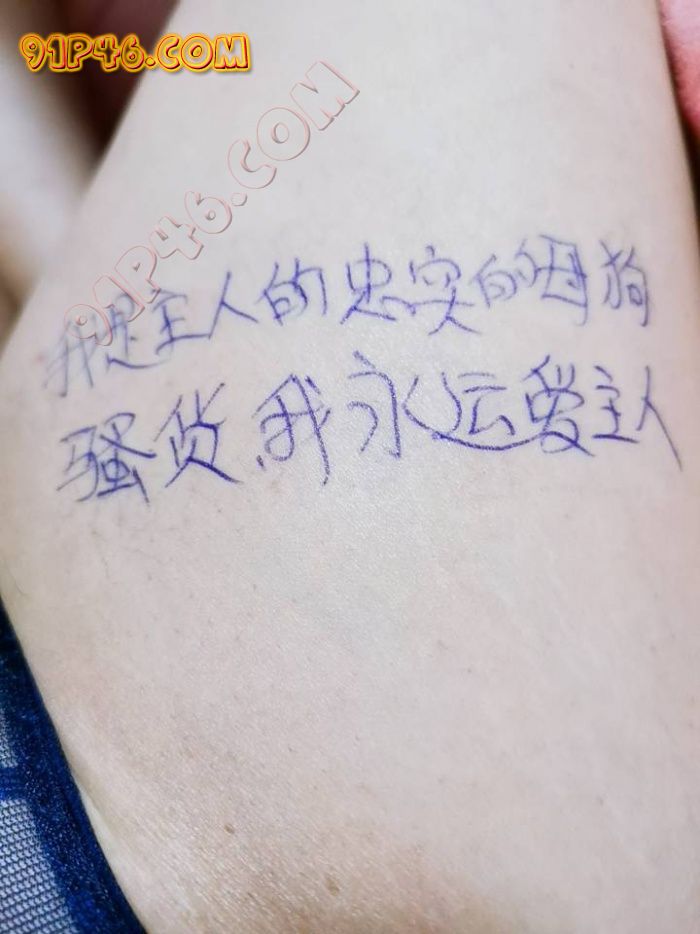 91P46.COM
91P46.COM
我是主人的忠实的母狗
骚货,我永远爱主人